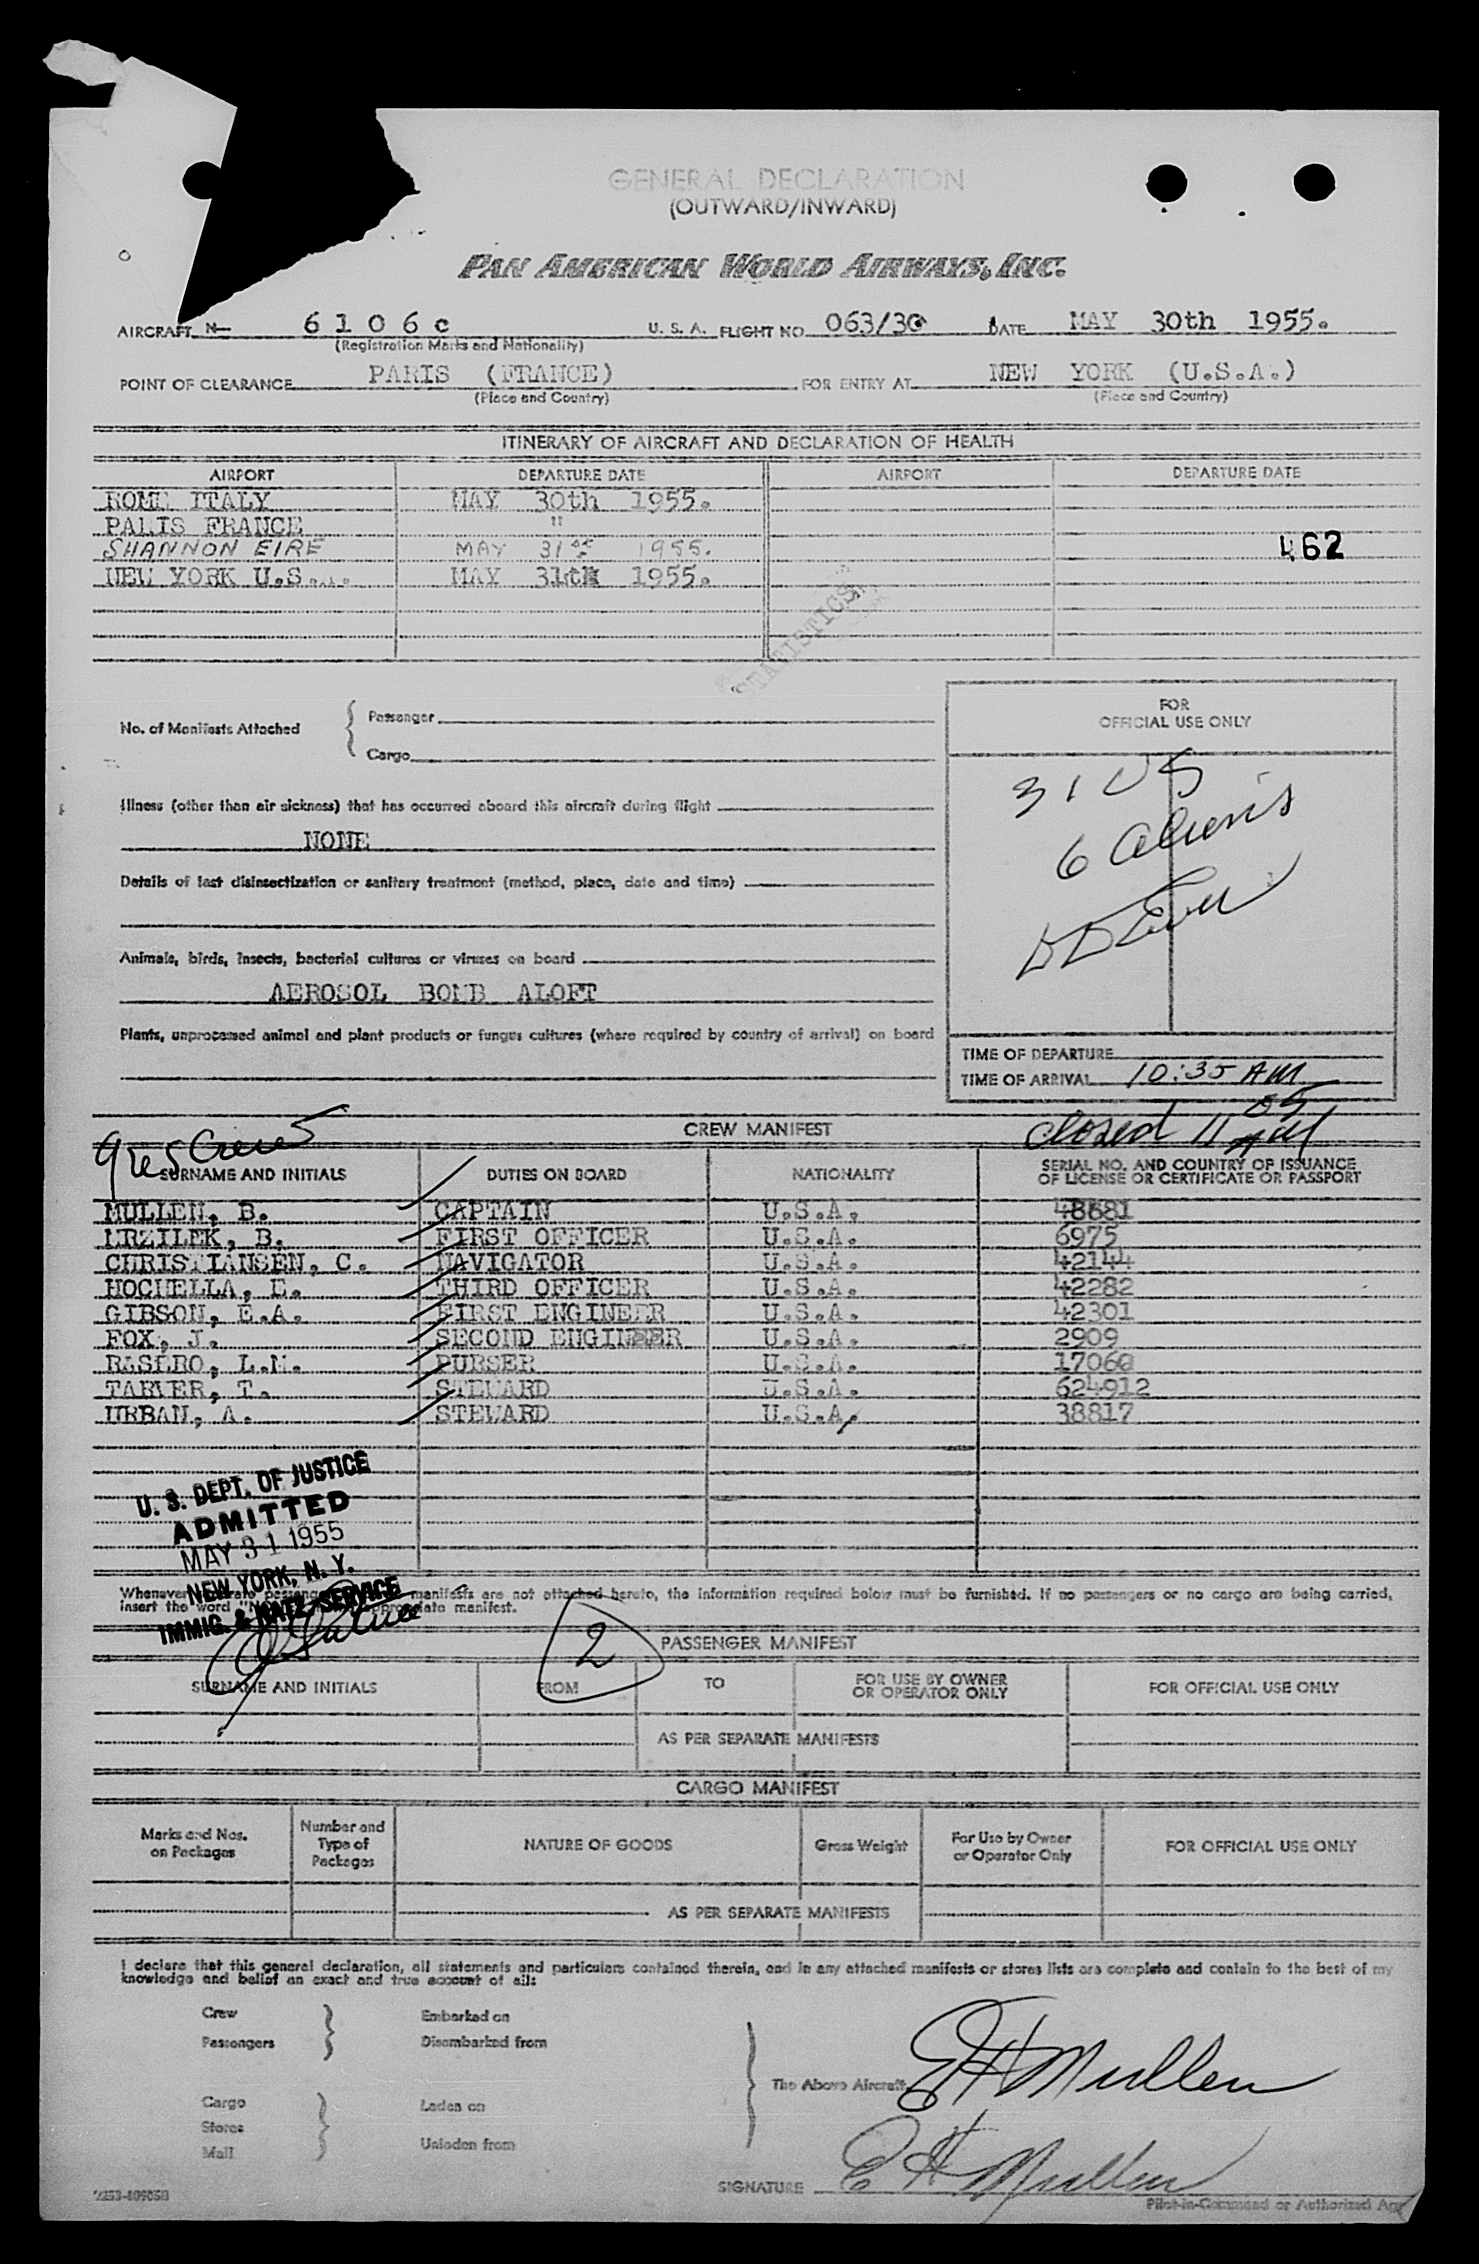 GENERAL DECLARATION
(OUTWARD/INWARD)
PAN AMERICAN WORLD AIRWAYS, INC.
AIRCRAFT N- 6106c U. S. A. FLIGHT NO 063/30 DATE MAY 30th 1955.
(Registration Marks and Nationality)
POINT OF CLEARANCE PARIS (FRANCE) FOR ENTRY AT NEW YORK (U.S.A.)
(Place and Country) (Place and Country)
ITINERARY OF AIRCRAFT AND DECLARATION OF HEALTH
AIRPORT DEPARTURE DATE AIRPORT DEPARTURE DATE
ROME ITALY MAY 30th 1955.
PARIS FRANCE "
SHANNON EIRE MAY 31st 1955. 462
NEW YORK U.S.A. MAY 31 1955.
STATISTICS
No. of Manifests Attached
Passenger
Cargo
FOR
OFFICIAL USE ONLY
31 US
6 Aliens
Illness (other than air sickness) that has occurred aboard this aircraft during flight
NONE
Details of last disinsectization or sanitary treatment (method, place, date and time)
Animals, birds, insects, bacterial cultures or viruses on board
AEROSOL BOMB ALOFT
Plants, unprocessed animal and plant products or fungus cultures (where required by country of arrival) on board
TIME OF DEPARTURE
TIME OF ARRIVAL 10:35 AM
9 US Crew
CREW MANIFEST
Closed 11 05 AM
SURNAME AND INITIALS DUTIES ON BOARD NATIONALITY SERIAL NO. AND COUNTRY OF ISSUANCE
OF LICENSE OR CERTIFICATE OR PASSPORT
MULLEN, B. CAPTAIN U.S.A. 48681
MRZILEK, B. FIRST OFFICER U.S.A. 6975
CHRISTIANSEN, C. NAVIGATOR U.S.A. 42144
HOCHELLA, E. THIRD OFFICER U.S.A. 42282
GIBSON, E.A. FIRST ENGINEER U.S.A. 42301
FOX, J. SECOND ENGINEER U.S.A. 2909
RASERO, L.M. PURSER U.S.A. 17060
TARVER, T. STEWARD U.S.A. 624912
URBAN, A. STEWARD U.S.A. 38817
U. S. DEPT. OF JUSTICE
ADMITTED
MAY 31 1955
NEW YORK, N. Y.
IMMIG. & NATZ. SERVICE
Whenever passenger manifests are not attached hereto, the information required below must be furnished. If no passengers or no cargo are being carried,
insert the word appropriate manifest.
2
PASSENGER MANIFEST
SURNAME AND INITIALS FROM TO FOR USE BY OWNER
OR OPERATOR ONLY FOR OFFICIAL USE ONLY
AS PER SEPARATE MANIFESTS
CARGO MANIFEST
Marks and Nos.
on Packages Number and
Type of
Packages NATURE OF GOODS Gross Weight For Use by Owner
or Operator Only FOR OFFICIAL USE ONLY
AS PER SEPARATE MANIFESTS
I declare that this general declaration, all statements and particulars contained therein, and in any attached manifests or stores lists are complete and contain to the best of my
knowledge and belief an exact and true account of all:
Crew Embarked on
Passengers Disembarked from
The Above Aircraft
EH Mullen
Cargo Laden on
Stores
Mail Unladen from
SIGNATURE EH Mullen
Pilot-in-Command or Authorized Agent